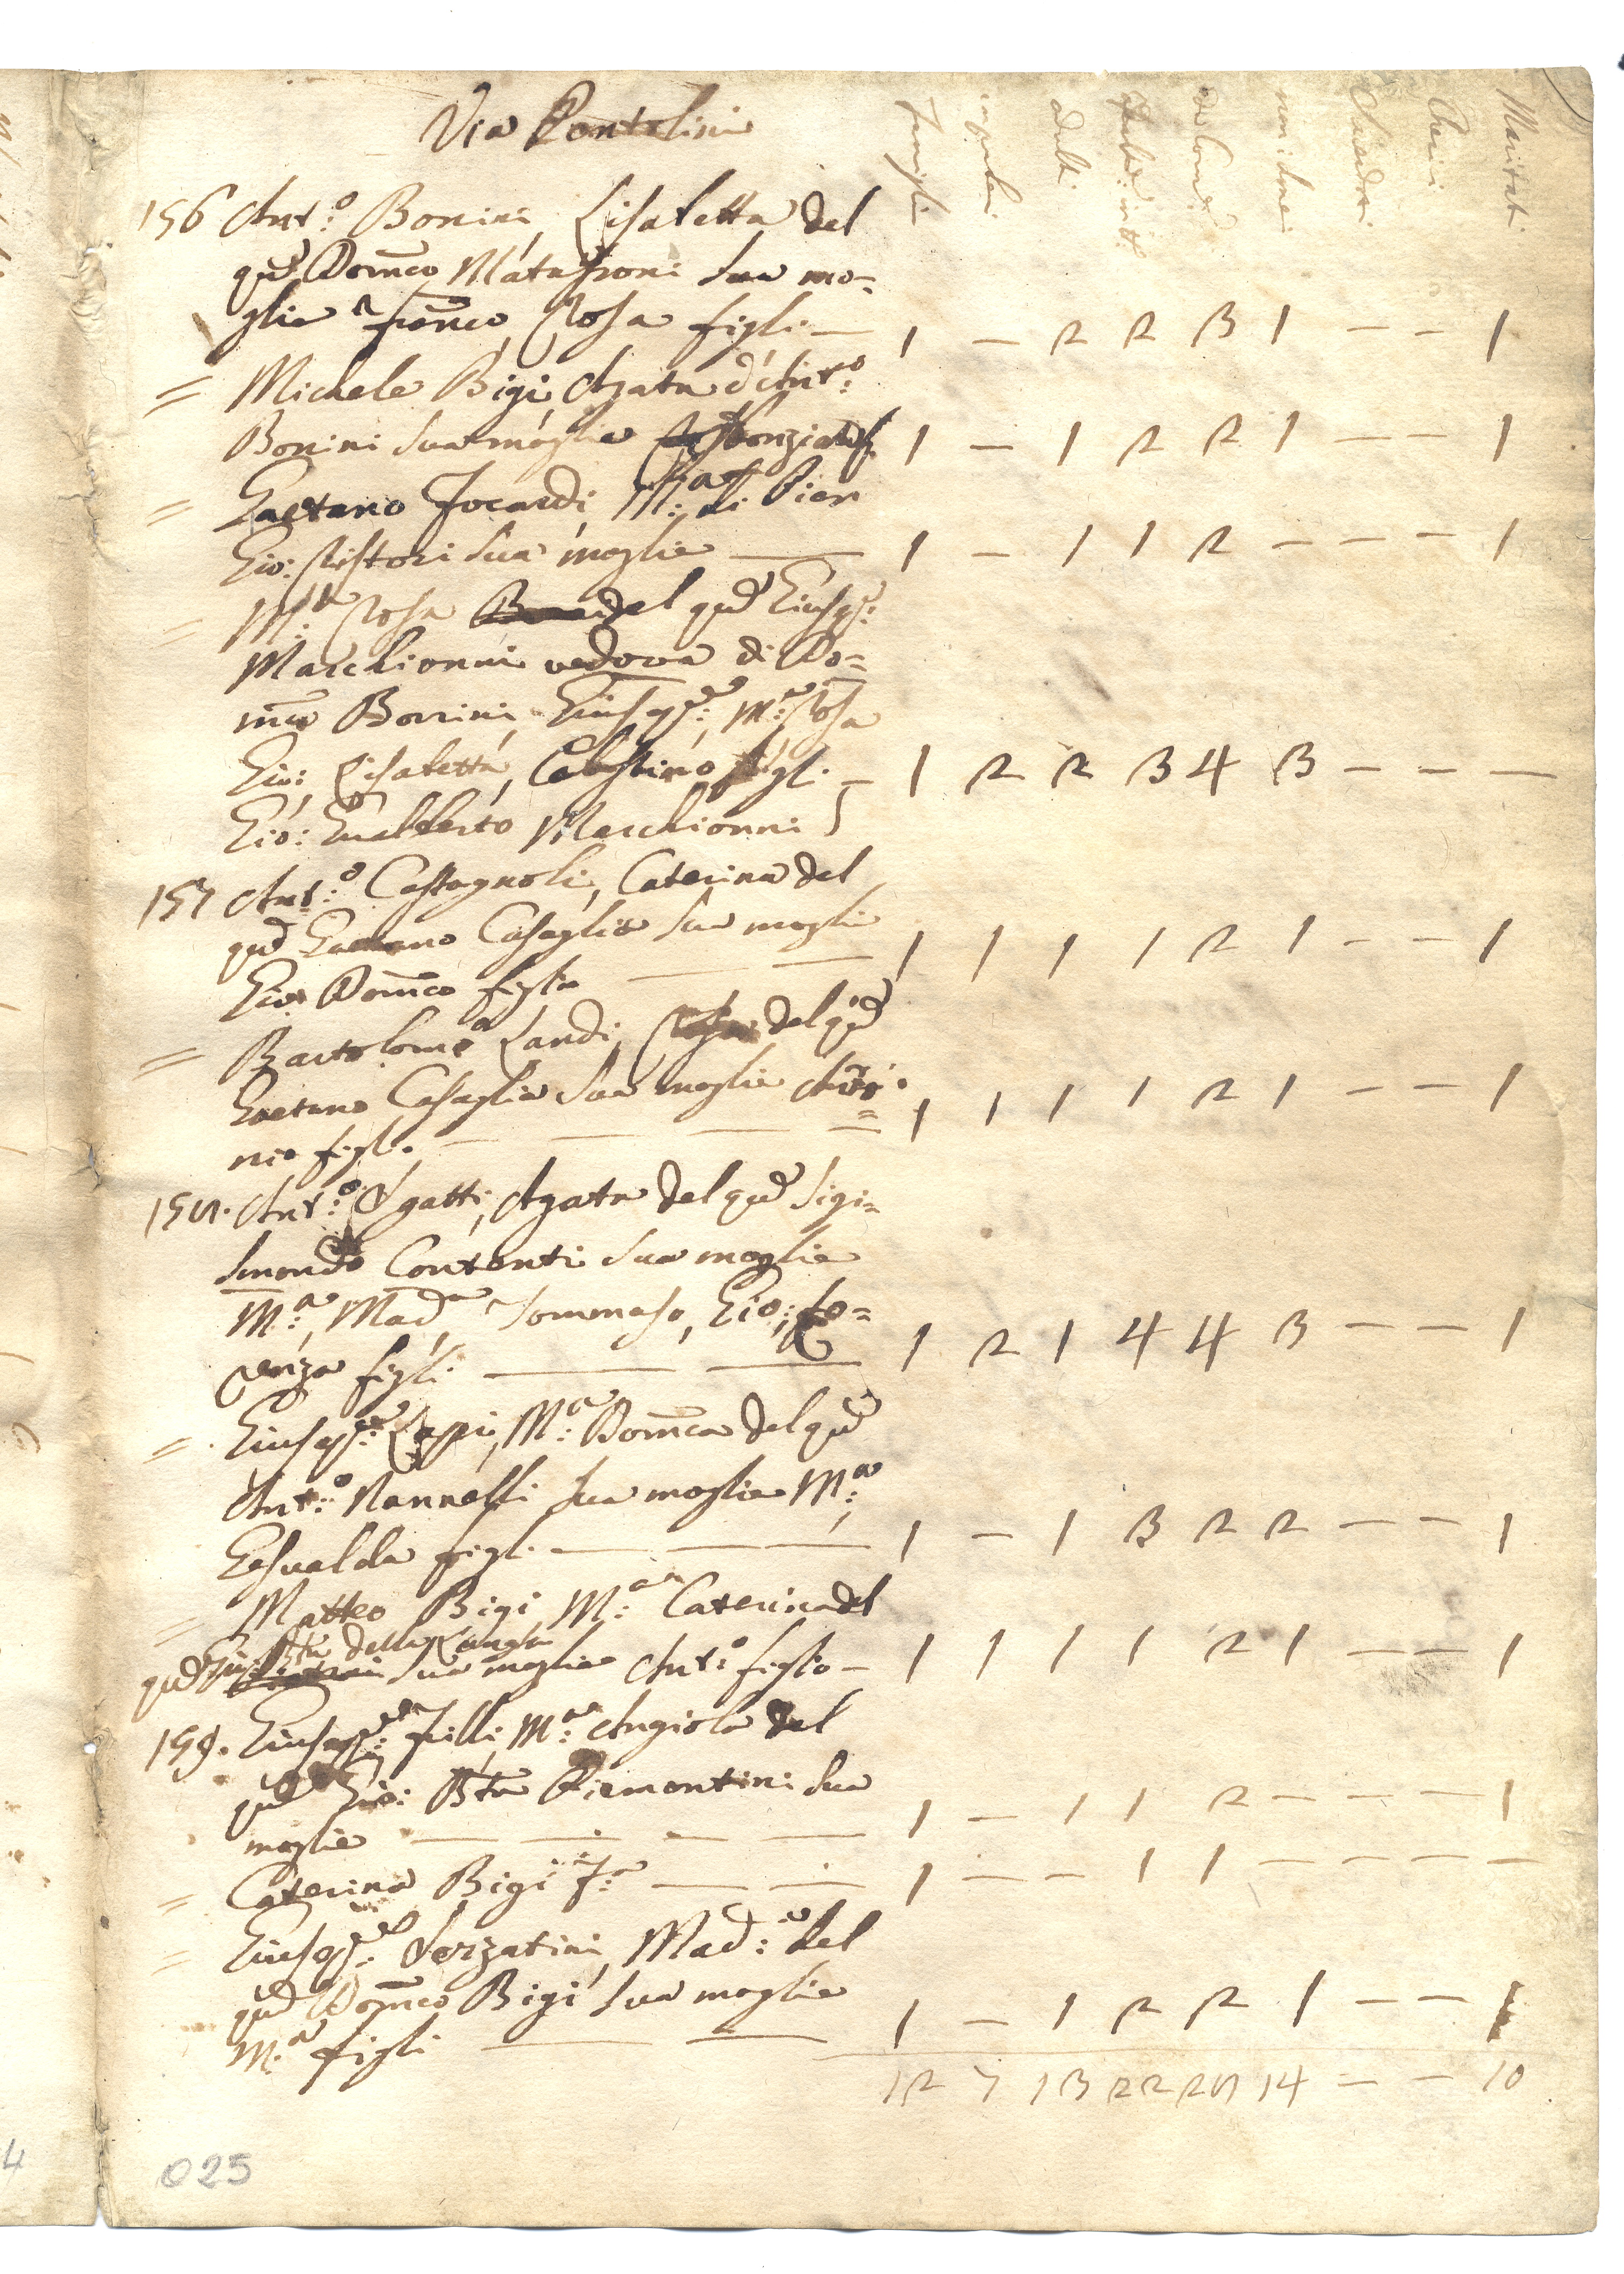 Via Pentolini
Famiglie impuberi Adulti Femmine Maschi Chierici Mariti
156 Ant.º Bonini, Lisabetta del
qm Domco Matassoni sua mo=
glie franco, Rosa figli — 1 — 2 2 3 1 — — 1
= Michele Bigi, Agata d'Ant.º
Bonini sua moglie 1 — 1 2 2 1 — — 1
= Gaetano Focardi, M.ª di Pier
Gio: Ristori sua moglie — 1 — 1 1 2 — — — 1
= M.ª Rosa del qm Giusepe:
Marchionni vedova di Do=
mco Bonini, Giusepe:, M.ª Rosa
Gio:, Lisabetta, Celestino figli — 1 2 2 3 4 3 — — —
Gio: Gualberto Marchionni
157 Ant.º Castagnoli, Caterina del
qm Gaetano Casaglia sua moglie
Gio: Domco figli — — 1 1 1 1 2 1 — — 1
= Bartolomeo Landi, Rosa del qm
Gaetano Casaglia sua moglie Anto=
nio figli. — — — — 1 1 1 1 2 1 — — 1
158. Ant.º Sgatti, Agata del qm Sigi=
smondo Contenti sua moglie
M.ª, Madª Tommaso, Gio:, Lo=
renza figli — — 1 2 1 4 4 3 — — 1
= Giusepe: Lappi, M.ª Domca del qm
Ant.º Nannelli sua moglie M.ª,
Gesualda figli — — — 1 — 1 3 2 2 — — 1
= Matteo Bigi, M.ª Caterina del
qm Gio: Bta della Lunga sua moglie Ant.º figlio — 1 1 1 1 2 1 — — 1
159. Giusepe: Filli, M.ª Angiola del
qm Gio: Bta Piemontini sua
moglie — — — — 1 — 1 1 2 — — — 1
= Caterina Bigi fª — — 1 — — 1 1 — — — —
= Giusepe: Serzatini, Mad:ª del
qm Domco Bigi sua moglie
M.ª figli — — 1 — 1 2 2 1 — — 1
12 7 13 22 28 14 — — 10
025
4